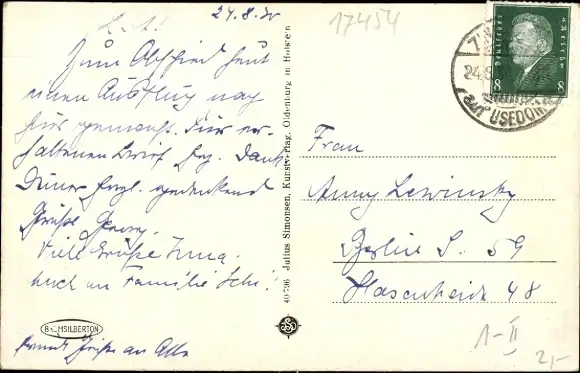 24.8.30
17454
L. A.!
Zum Abschied heut
einen Ausflug nach
hier gemacht. Für er-
haltenen Brief herzl. Dank
Deiner herzl. gedenkend
Grüße Georg.
Viele Grüße Irma.
Auch an Familie Sch.!
Grüße an Alle
BROMSILBERTON
40796 Julius Simonsen, Kunstverlag, Oldenburg in Holstein
Deutsches Reich
8 8
24.8.
auf USEDOM
Frau
Anny Lewinsky
Berlin S. 59
Hasenheide 48
1-II
2,-